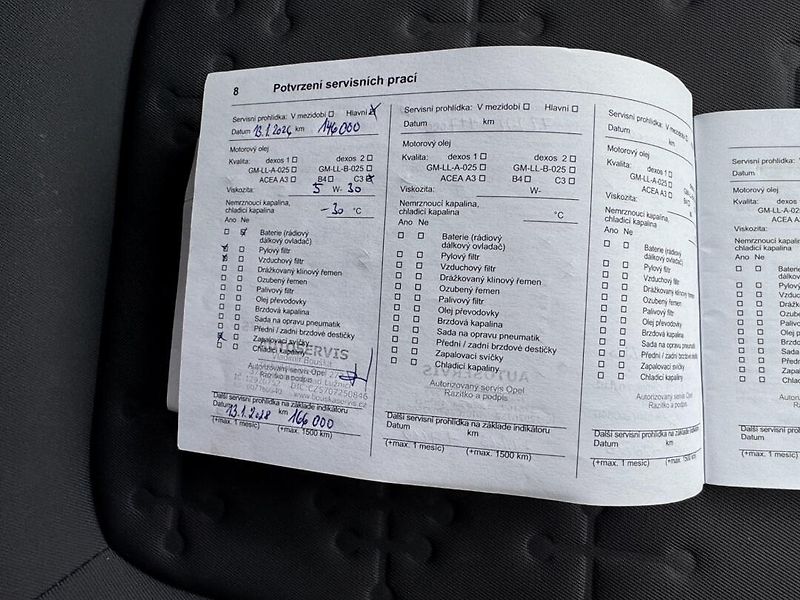 8 Potvrzení servisních prací
Servisní prohlídka: V mezidobí Hlavní
Datum 13.1.2024 km 146000
Motorový olej
Kvalita: dexos 1 dexos 2
GM-LL-A-025 GM-LL-B-025
ACEA A3 B4 C3
Viskozita: 5 W- 30
Nemrznoucí kapalina,
chladicí kapalina -30 °C
Ano Ne
Baterie (rádiový
dálkový ovladač)
Pylový filtr
Vzduchový filtr
Drážkovaný klínový řemen
Ozubený řemen
Palivový filtr
Olej převodovky
Brzdová kapalina
Sada na opravu pneumatik
Přední / zadní brzdové destičky
Zapalovací svíčky
Chladicí kapaliny
AUTOSERVIS
Autorizovaný servis Opel
Razítko a podpis
www.bouskaservis.cz
Další servisní prohlídka na základě indikátoru
Datum 13.1.2028 km 166 000
(+max. 1 měsíc) (+max. 1500 km)
Servisní prohlídka: V mezidobí Hlavní
Datum km
Motorový olej
Kvalita: dexos 1 dexos 2
GM-LL-A-025 GM-LL-B-025
ACEA A3 B4 C3
Viskozita: W-
Nemrznoucí kapalina,
chladicí kapalina °C
Ano Ne
Baterie (rádiový
dálkový ovladač)
Pylový filtr
Vzduchový filtr
Drážkovaný klínový řemen
Ozubený řemen
Palivový filtr
Olej převodovky
Brzdová kapalina
Sada na opravu pneumatik
Přední / zadní brzdové destičky
Zapalovací svíčky
Chladicí kapaliny
Autorizovaný servis Opel
Razítko a podpis
Další servisní prohlídka na základě indikátoru
Datum km
(+max. 1 měsíc) (+max. 1500 km)
Servisní prohlídka: V mezidobí
Datum km
Motorový olej
Kvalita: dexos 1
GM-LL-A-025
ACEA A3
Viskozita:
Nemrznoucí kapalina,
chladicí kapalina
Ano Ne
Baterie (rádiový
dálkový ovladač)
Pylový filtr
Vzduchový filtr
Drážkovaný klínový řemen
Ozubený řemen
Palivový filtr
Olej převodovky
Brzdová kapalina
Sada na opravu pneumatik
Přední / zadní brzdové
Zapalovací svíčky
Chladicí kapaliny
Autorizovaný servis Opel
Razítko a podpis
Další servisní prohlídka na základě
Datum km
(+max. 1 měsíc) (+max. 1500 km)
Servisní
Datum
Motorový olej
Kvalita:
GM-LL-A-02
ACEA
Viskozita:
Nemrznoucí kapalin
chladicí kapalina
Ano Ne